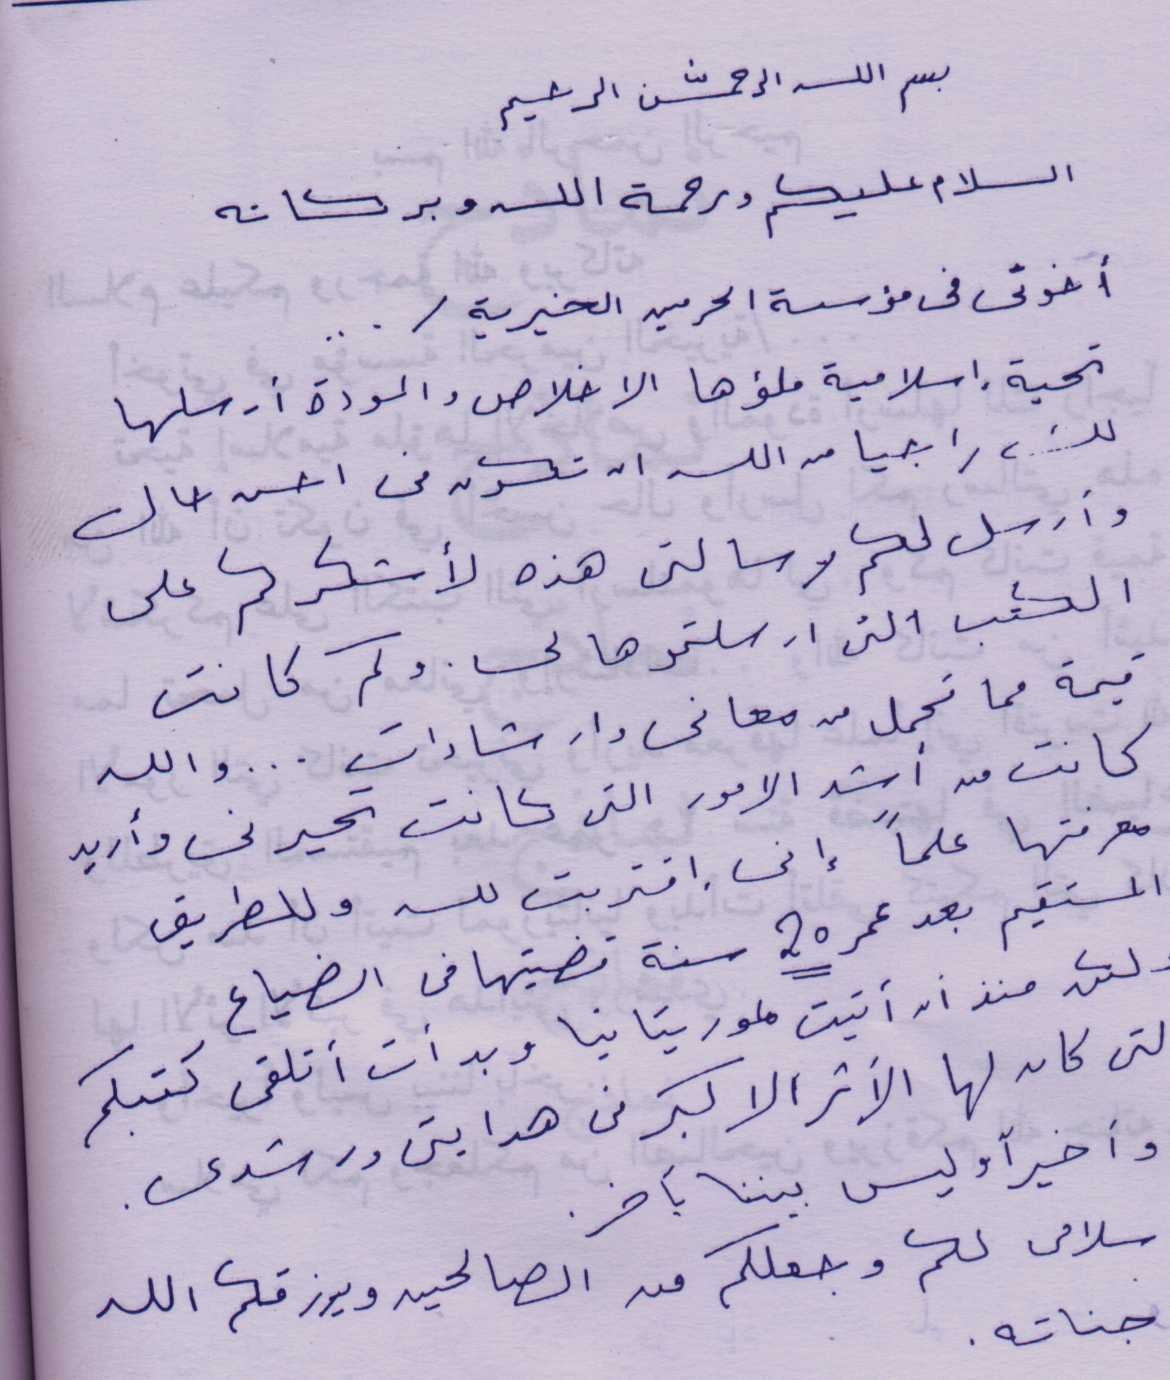 بسم الله الرحمن الرحيم
السلام عليكم ورحمة الله وبركاته
أخوتى فى مؤسسة الحرمين الخيرية / ...
تحية إسلامية ملؤها الاخلاص والمودة أرسلها
لك راجيا من الله ان تكون فى احسن حال
وأرسل لكم رسالتى هذه لأشكركم على
الكتب التى ارسلتموها لى . وكم كانت
قيمة مما تحمل من معانى وارشادات ... والله
كانت من أشد الامور التى كانت تحيرنى وأريد
معرفتها علماً إنى اقتربت لله وللطريق
المستقيم بعد عمر 20 سنة قضيتها فى الضياع
ولكن منذ ان أتيت لموريتانيا وبدأت أتلقى كتبكم
لتى كان لها الأثر الاكبر فى هدايتى ورشدى .
وأخيراً وليس بيننا بأخر .
سلامى لكم وجعلكم من الصالحين ويرزقكم الله
جناته .